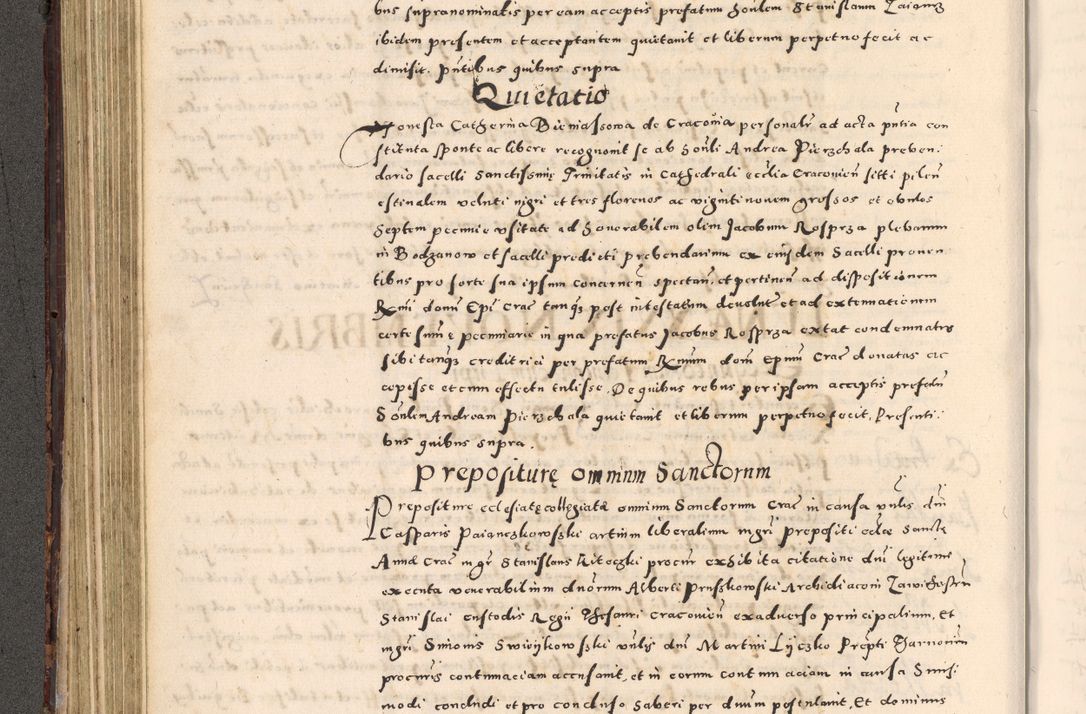 bus supranominatis per eam acceptis prefatum honlem Stanislaum Zaiancz
ibidem presentem et acceptantem quietavit et liberum perpetuo fecit ac
dimisit. Pntibus quibus supra
Quietatio
Honesta Catherina Biemiassowa de Cracovia personalr ad acta pntia con
stituta sponte ac libere recognovit se ab honli Andrea Pierzchala preben:
dario sacelli Sanctissimę Trinitatis in Cathedrali ecclia Cracovien sitti pileu
estivalem veluti nigri et tres florenos ac viginti novem grossos et obulos
septem pecunie usitate ad honorabilem olim Jacobum Rosprza plebanum
in Bodzanow et sacelli predicti prebendarium ex eiusdem Sacelli proven
tibus pro sorte sua ipsum concernen spectan, et pertinen ad dispositionem
Rmi domi Epi Crac tanqz post intestatum devolut et ad extenuationem
certe sumę pecuniarie in qua prefatus Jacobus Rosprza extat condemnatus
sibi tanqz creditrici per prefatum Rmum dom Epum Crac donatas ac
cepisse et cum effectu tulisse. De quibus rebus per ipsam acceptis prefatu
Honlem Andream Pierzchala quietavit et liberum perpetuo fecit, Presenti:
bus quibus supra.
Prepositurę omnium Sanctorum
Prepositure ecclesiatę collegiatę omnium Sanctorum Crac in causa vnlis dni
Casparis Paianczkowszki artium liberalium mgri prepositi eclæ Sanctę
Annæ Crac mgr Stanislaus Kiteczki procur exhibita citatione dni legitime
executa venerabilium duorum Alberti Pruszkowski Archidiaconi Zawichosten
Stanislai custodis Regni Thesauri Cracovien ex adverso principalium, et
mgri Simonis Swieijkowszki vnlis dni Martini Lijczko Prepti Tarnovien
procuris contumaciam accusavit, et in eorum contumaciam in causa Simi
modi concludi et pro concluso haberi per dnum postulavit, Et dominus